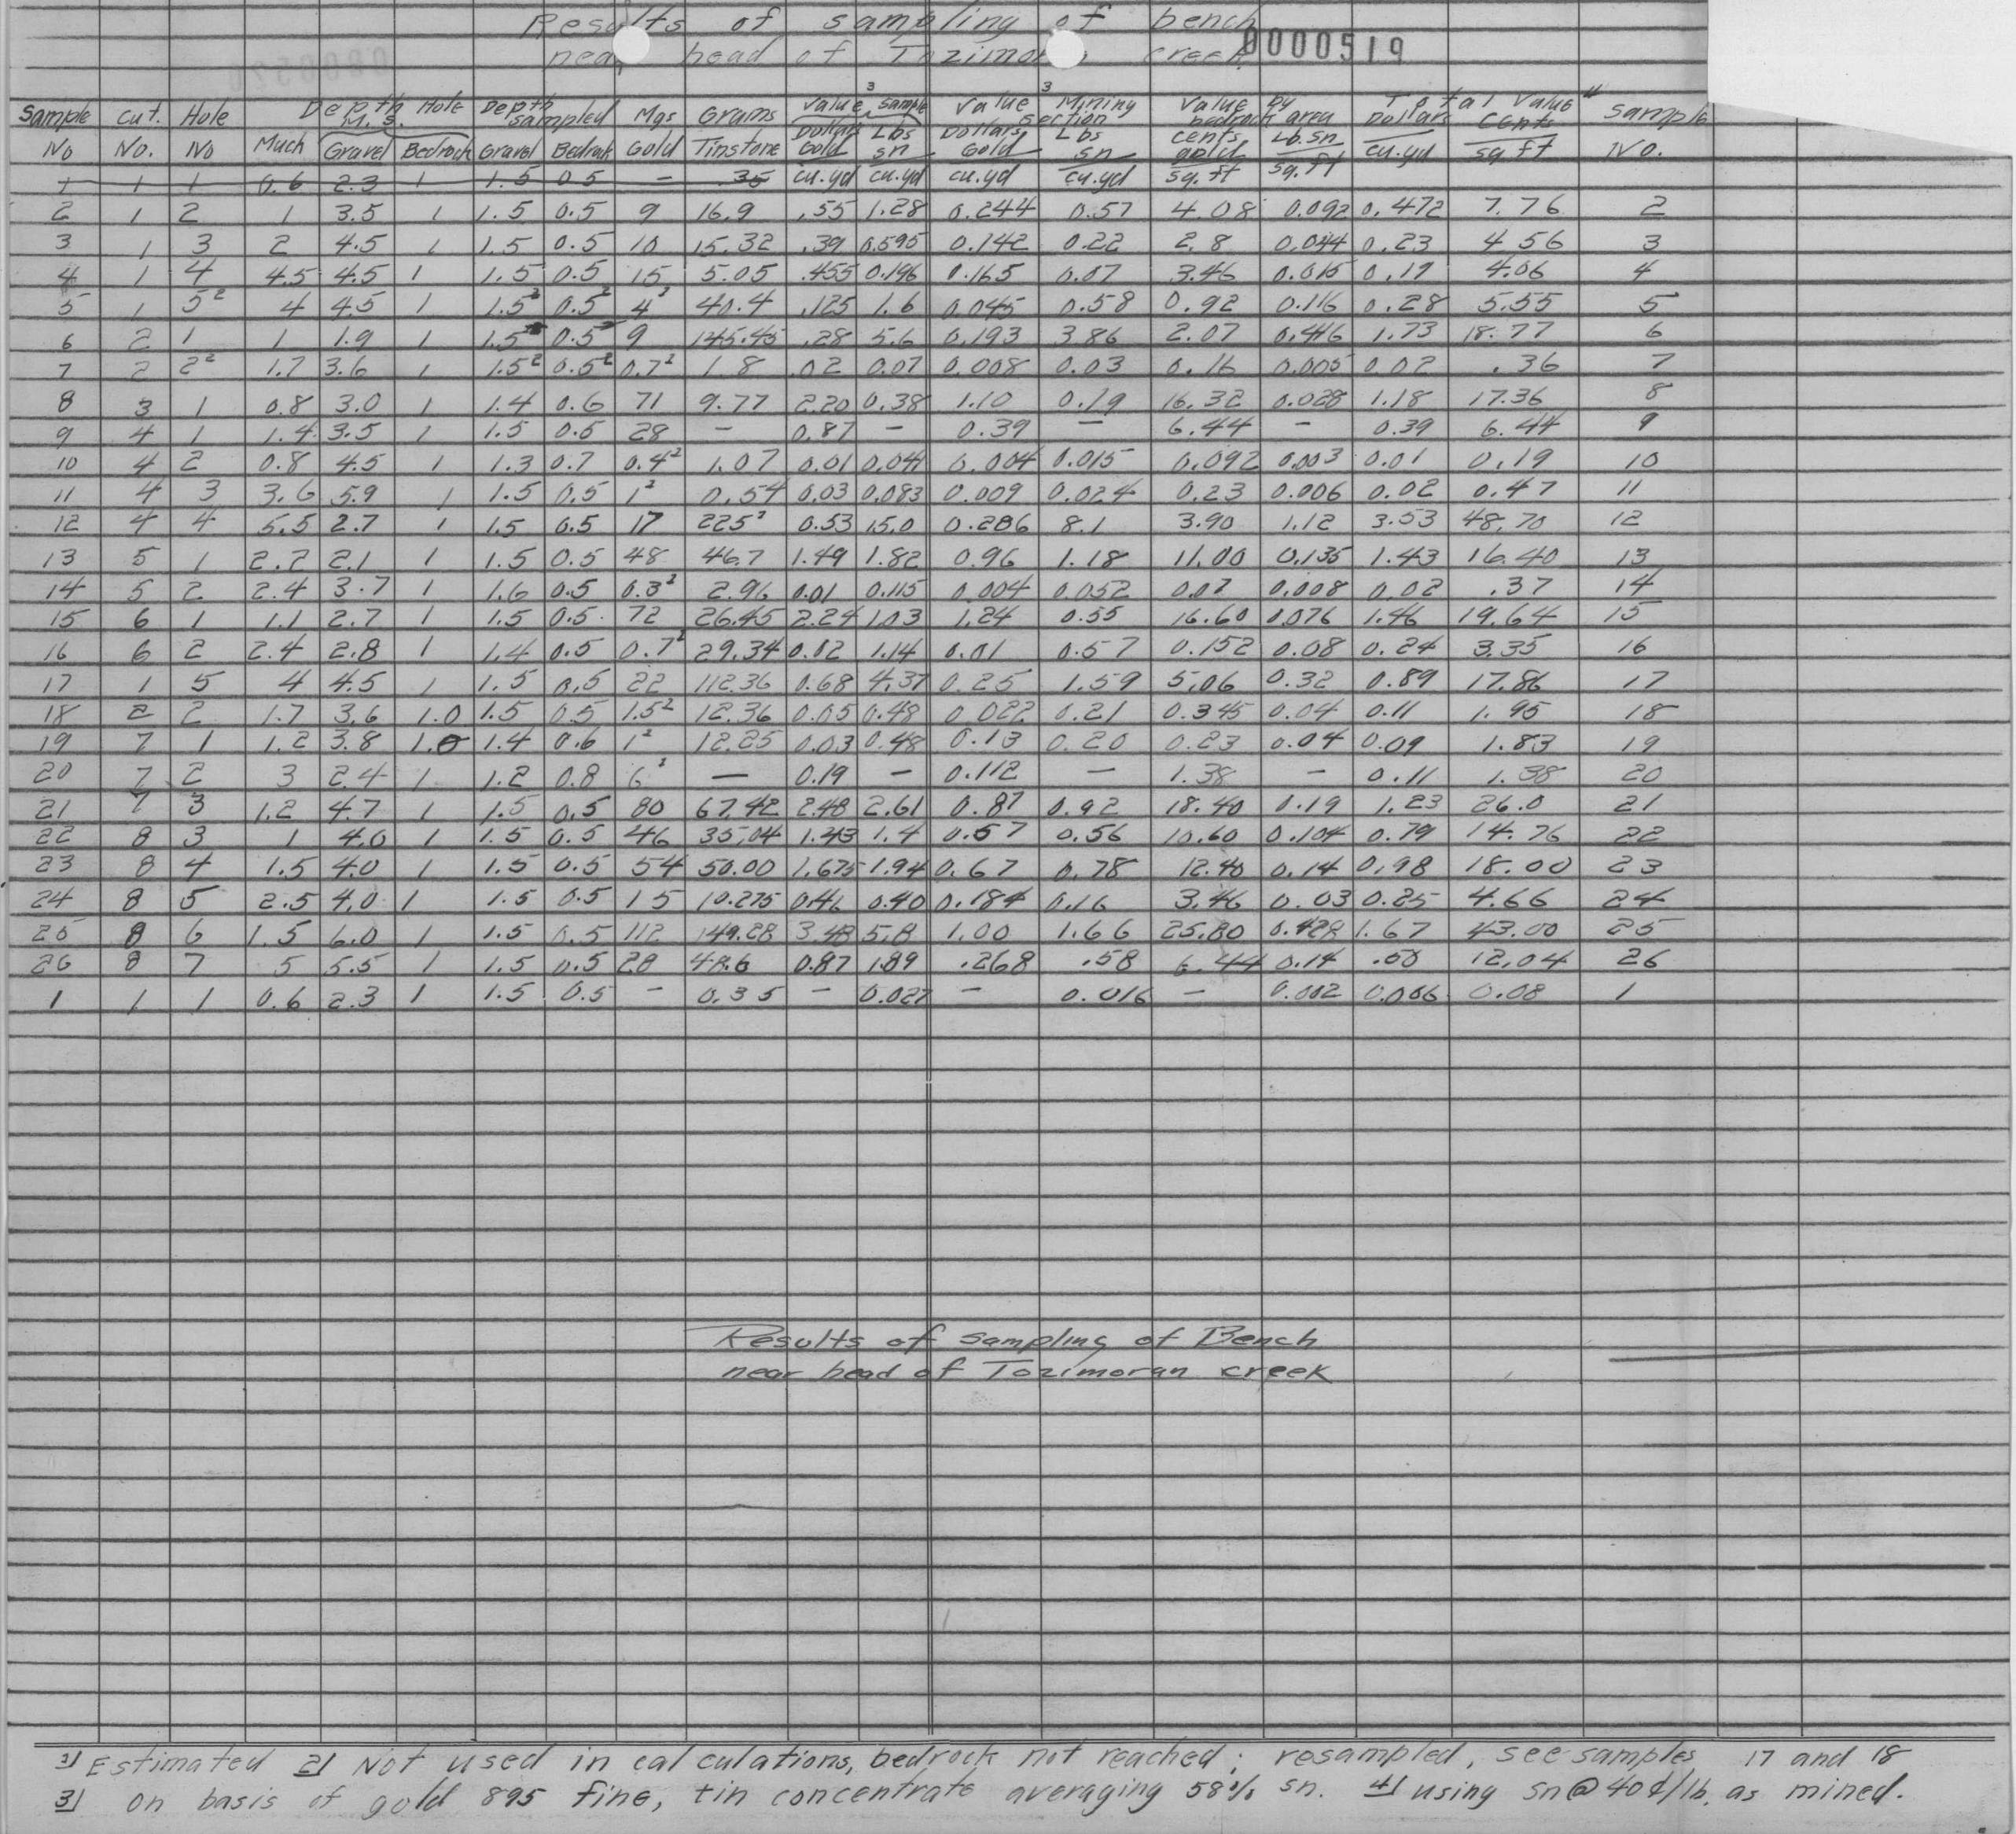 Results of sampling of bench
near head of Tozimoran creek
0000519
Sample Cut. Hole Depth Hole Depth Mgs Grams Value Sample³ Value Mining³ Value by Total Value 4 Sample
M.S. sampled section bedrock area
No No. No Much Gravel Bedrock Gravel Bedrock Gold Tinstone Dollars Gold cu.yd Lbs sn cu.yd Dollars Gold cu.yd Lbs sn cu.yd cents gold sq. ft Lb. sn sq. ft Dollars cu.yd Cents sq ft No.
1 1 1 0.6 2.3 1 1.5 0.5 – .35
2 1 2 1 3.5 1 1.5 0.5 9 16.9 .55 1.28 0.244 0.57 4.08 0.092 0.472 7.76 2
3 1 3 2 4.5 1 1.5 0.5 10 15.32 .39 0.595 0.142 0.22 2.8 0.044 0.23 4.56 3
4 1 4 4.5 4.5 1 1.5 0.5 15 5.05 .455 0.196 0.165 0.07 3.46 0.015 0.19 4.06 4
5 1 5² 4 4.5 1 1.5² 0.5² 4² 40.4 .125 1.6 0.045 0.58 0.92 0.116 0.28 5.55 5
6 2 1 1 1.9 1 1.5 0.5 9 145.45 .28 5.6 0.193 3.86 2.07 0.416 1.73 18.77 6
7 2 2² 1.7 3.6 1 1.5² 0.5² 0.7² 1.8 .02 0.07 0.008 0.03 0.16 0.005 0.02 .36 7
8 3 1 0.8 3.0 1 1.4 0.6 71 9.77 2.20 0.38 1.10 0.19 16.32 0.028 1.18 17.36 8
9 4 1 1.4 3.5 1 1.5 0.5 28 – 0.87 – 0.39 – 6.44 – 0.39 6.44 9
10 4 2 0.8 4.5 1 1.3 0.7 0.4² 1.07 0.01 0.041 0.004 0.015 0.092 0.003 0.01 0.19 10
11 4 3 3.6 5.9 1 1.5 0.5 1² 0.54 0.03 0.083 0.009 0.024 0.23 0.006 0.02 0.47 11
12 4 4 5.5 2.7 1 1.5 0.5 17 225² 0.53 15.0 0.286 8.1 3.90 1.12 3.53 48.70 12
13 5 1 2.2 2.1 1 1.5 0.5 48 46.7 1.49 1.82 0.96 1.18 11.00 0.135 1.43 16.40 13
14 5 2 2.4 3.7 1 1.6 0.5 0.3² 2.96 0.01 0.115 0.004 0.052 0.07 0.008 0.02 .37 14
15 6 1 1.1 2.7 1 1.5 0.5 72 26.45 2.24 1.03 1.24 0.55 16.60 0.076 1.46 19.64 15
16 6 2 2.4 2.8 1 1.4 0.5 0.7² 29.34 0.02 1.14 0.01 0.57 0.152 0.08 0.24 3.35 16
17 1 5 4 4.5 1 1.5 0.5 22 112.36 0.68 4.37 0.25 1.59 5.06 0.32 0.89 17.86 17
18 2 2 1.7 3.6 1.0 1.5 0.5 1.5² 12.36 0.05 0.48 0.022 0.21 0.345 0.04 0.11 1.95 18
19 7 1 1.2 3.8 1.0 1.4 0.6 1² 12.25 0.03 0.48 0.13 0.20 0.23 0.04 0.09 1.83 19
20 7 2 3 2.4 1 1.2 0.8 6² – 0.19 – 0.112 – 1.38 – 0.11 1.38 20
21 7 3 1.2 4.7 1 1.5 0.5 80 67.42 2.48 2.61 0.87 0.92 18.40 0.19 1.23 26.0 21
22 8 3 1 4.0 1 1.5 0.5 46 35.04 1.43 1.4 0.57 0.56 10.60 0.104 0.79 14.76 22
23 8 4 1.5 4.0 1 1.5 0.5 54 50.00 1.675 1.94 0.67 0.78 12.40 0.14 0.98 18.00 23
24 8 5 2.5 4.0 1 1.5 0.5 15 10.275 0.46 0.40 0.184 0.16 3.46 0.03 0.25 4.66 24
25 8 6 1.5 6.0 1 1.5 0.5 112 149.28 3.48 5.8 1.00 1.66 25.80 0.428 1.67 43.00 25
26 8 7 5 5.5 1 1.5 0.5 28 48.6 0.87 1.89 .268 .58 6.44 0.14 .50 12.04 26
1 1 1 0.6 2.3 1 1.5 0.5 – 0.35 – 0.027 – 0.016 – 0.002 0.006 0.08 1
Results of Sampling of Bench
near head of Tozimoran creek
1/ Estimated 2/ Not used in calculations, bedrock not reached; resampled, see samples 17 and 18
3/ on basis of gold 895 fine, tin concentrate averaging 58% sn. 4/ using sn @ 40¢/lb. as mined.